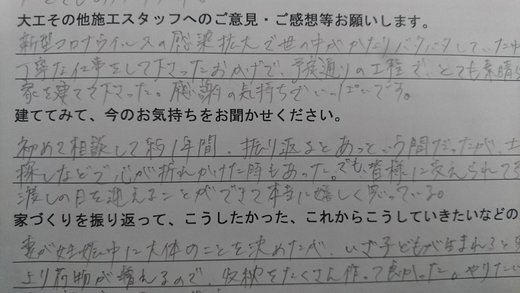 大工その他施工スタッフへのご意見・ご感想等お願いします。
新型コロナウイルスの感染拡大で世の中がかなりバタバタしていた中
丁寧な仕事をして下さったおかげで、予定通りの工程で、とても素晴
家を建てて下さった。感謝の気持ちでいっぱいです。
建ててみて、今のお気持ちをお聞かせください。
初めて相談して約1年間、振り返るとあっという間だったが、土
探しなどで心が折れかけた時もあった。でも皆様に支えられて
渡しの日を迎えることができて本当に嬉しく思っている。
家づくりを振り返って、こうしたかった、これからこうしていきたいなどの
妻が妊娠中に大体のことを決めたが、いざ子どもが生まれると
より荷物が増えるので、収納をたくさん作って良かった。やりたい